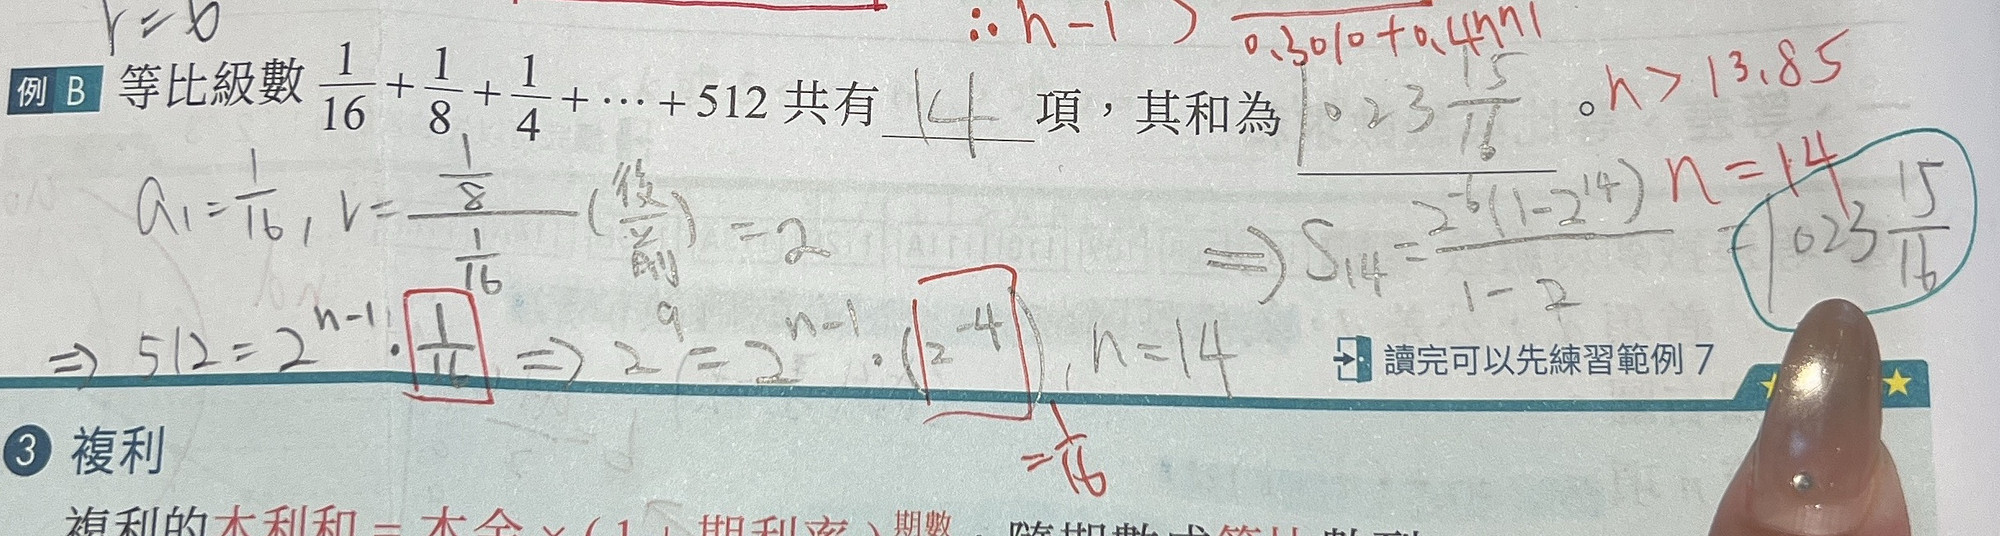 r = b
∴ n-1 > 0.3010+0.4771
例 B 等比級數 1/16 + 1/8 + 1/4 + ⋯ + 512 共有 14 項,其和為 1023 15/16 。
n > 13.85
n = 14
a₁ = 1/16, r = (1/8)/(1/16) (後/前) = 2
⇒ S₁₄ = 2⁻⁶(1-2¹⁴)/(1-2) = 1023 15/16
⇒ 512 = 2ⁿ⁻¹ · 1/16 ⇒ 2⁹ = 2ⁿ⁻¹ · (2⁻⁴), n = 14
= 1/16
讀完可以先練習範例 7
3 複利
複利的本利和 = 本金 × ( 1 + 期利率 )期數,隨期數成等比數列